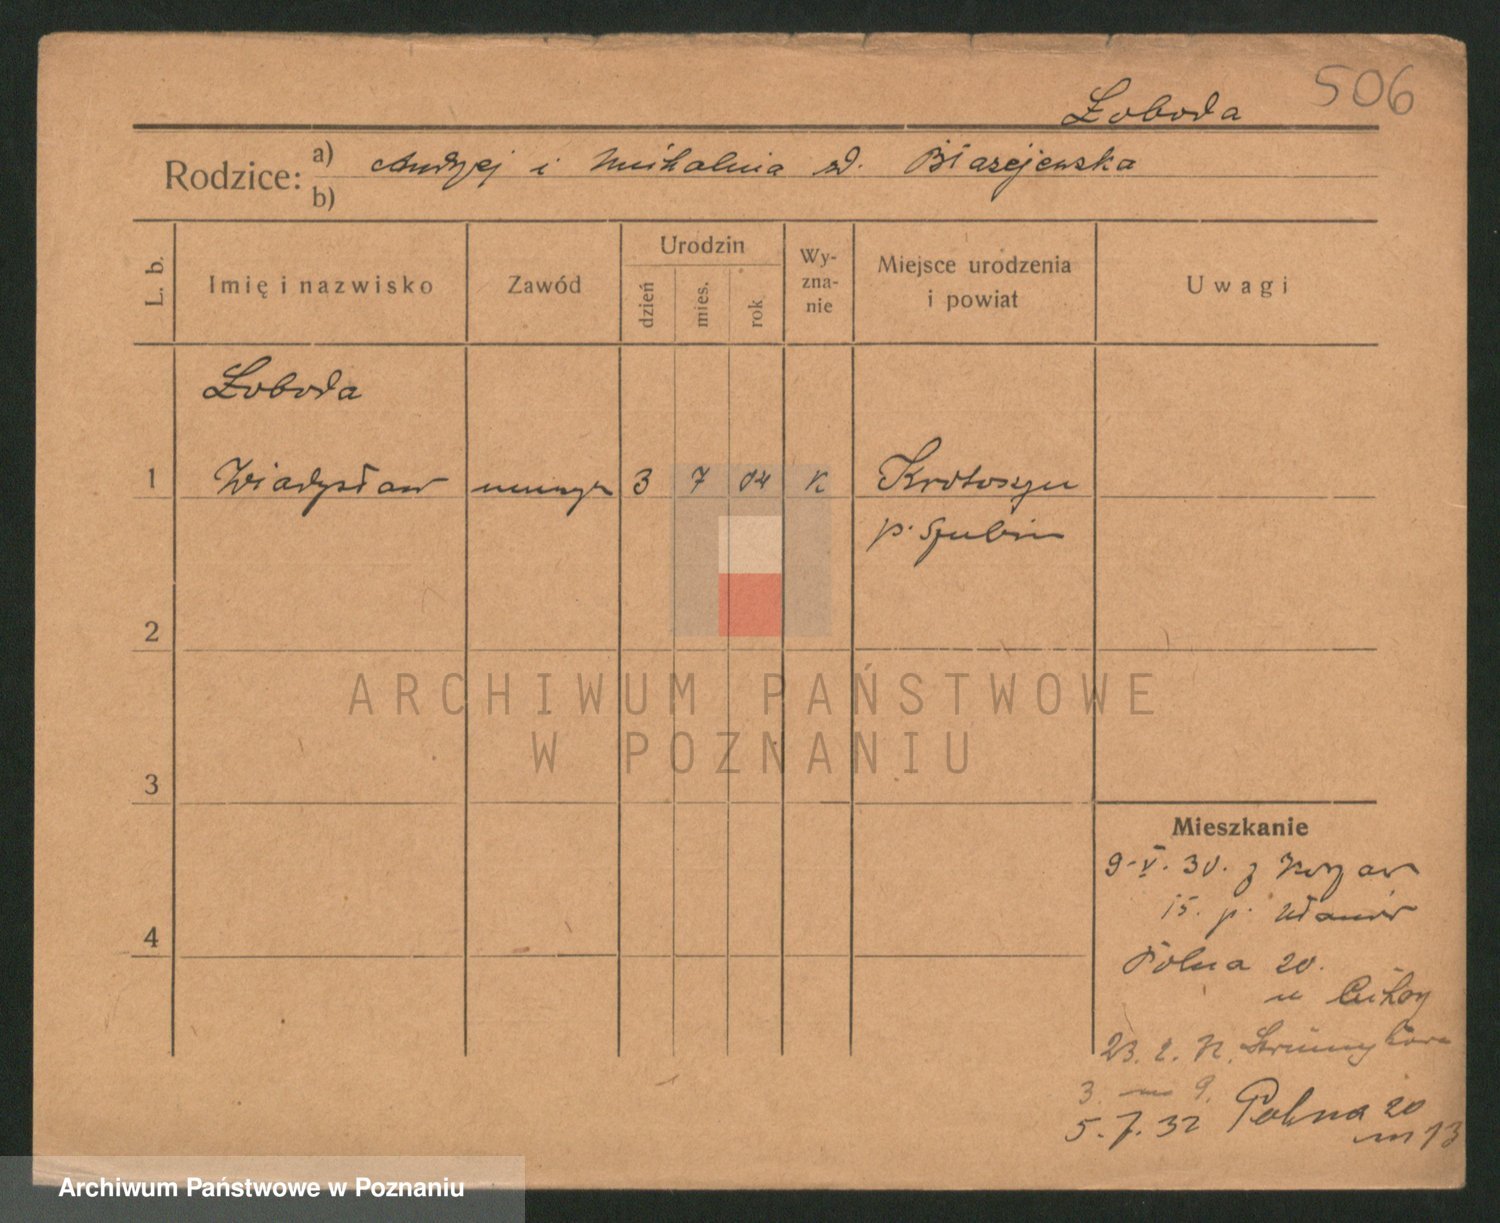 506
Łoboda
Rodzice: a) Andrzej i Michalina zd. Błażejewska
b)
L. b.
Imię i nazwisko
Zawód
Urodzin
dzień
mies.
rok
Wy-
zna-
nie
Miejsce urodzenia
i powiat
Uwagi
Łoboda
1 Władysław 3 7 04 K Krotoszyn
p. Szubin
2
ARCHIWUM PAŃSTWOWE
W POZNANIU
3
Mieszkanie
9-V. 30. z Koszar
15. p. Ułanów
4
Polna 20.
u
23. 2. Strumykowa
3. m 9.
5.7.32 Polna 20
m 13
Archiwum Państwowe w Poznaniu